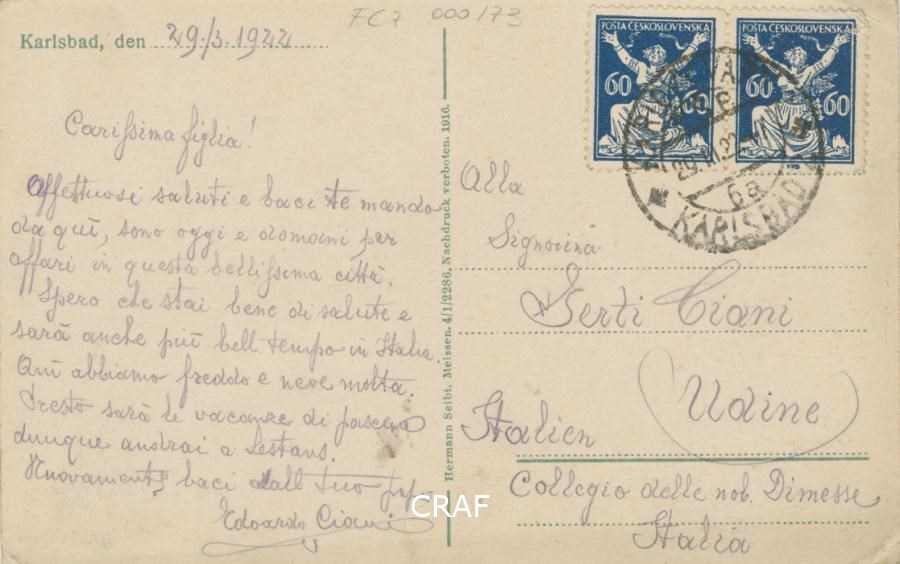 FC7 000/73
Karlsbad, den 29/3 1922
Carissima figlia!
Affettuosi saluti e baci te mando
da quì, sono oggi e domani per
affari in questa bellissima città.
Spero che stai bene di salute e
sarà anche più bell tempo in Italia.
Qui abbiamo freddo e neve molta.
Presto sarà le vacanze di pascqua
dunque andrai a Sestans.
Nuovamente baci dall tuo
Edoardo Ciani
Hermann Seibt, Meissen. 4/1/2286. Nachdruck verboten. 1916.
POŠTA ČESKOSLOVENSKÁ
60 60
VHB
POŠTA ČESKOSLOVENSKÁ
60 60
VHB
KARLOVY VARY
29.III.22
6a
KARLSBAD
Alla
Signorina
Gerti Ciani
Udine
Italien
Collegio delle nob. Dimesse
Italia
CRAF